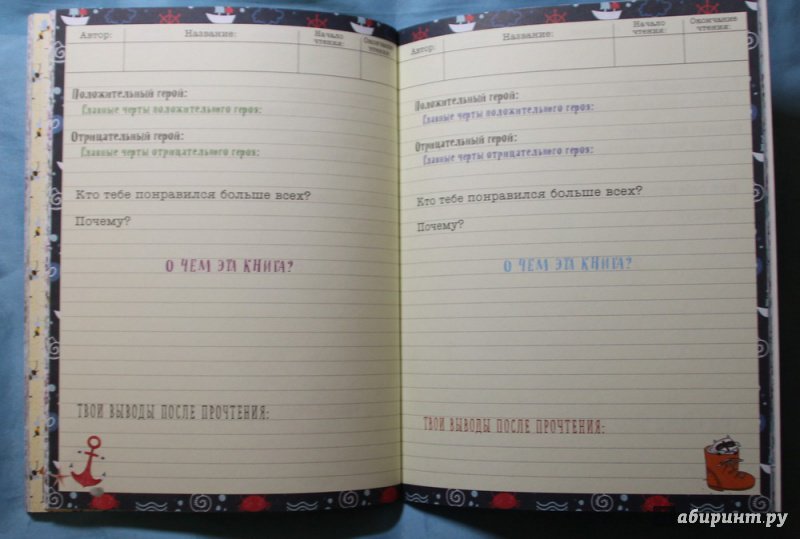 Автор: Название: Начало чтения: Окончание чтения:
Положительный герой:
Главные черты положительного героя:
Отрицательный герой:
Главные черты отрицательного героя:
Кто тебе понравился больше всех?
Почему?
О ЧЕМ ЭТА КНИГА?
ТВОИ ВЫВОДЫ ПОСЛЕ ПРОЧТЕНИЯ:
Автор: Название: Начало чтения: Окончание чтения:
Положительный герой:
Главные черты положительного героя:
Отрицательный герой:
Главные черты отрицательного героя:
Кто тебе понравился больше всех?
Почему?
О ЧЕМ ЭТА КНИГА?
ТВОИ ВЫВОДЫ ПОСЛЕ ПРОЧТЕНИЯ:
абиринт.ру